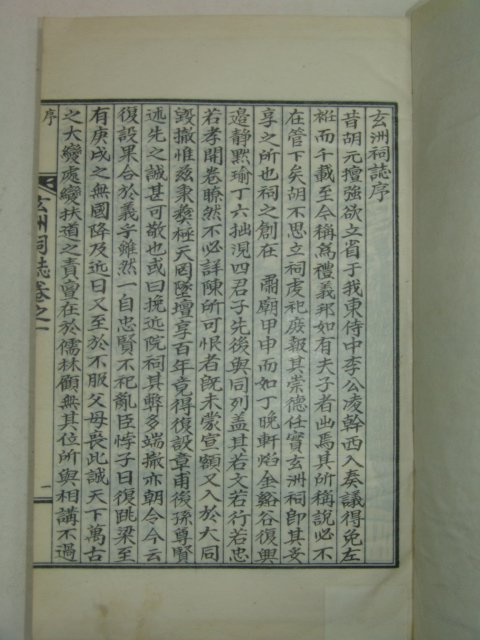 玄洲祠誌序
昔胡元擅強欲立省于我東侍中李公凌幹西入奏議得免左
袵而千載至今稱爲禮義邦如有夫子者出焉其所稱說必不
在管下矣胡不思立祠虔祀庶報其崇德任實玄洲祠即其妥
享之所也祠之創在 肅廟甲申而如丁晩軒焰金谿谷復興
邉静黙瑜丁六拙浻四君子先後與同列盖其若文若行若忠
若孝開卷瞭然不必詳陳所可恨者旣未蒙宣額又入於大同
毀撤惟玆秉彜極天罔墜壇享百年竟得復設章甫後孫尊賢
述先之誠甚可敬也或曰挽近院祠其弊多端撤亦朝令今云
復設果合於義乎雖然一自忠賢不祀亂臣悖子日復跳梁至
有庚戌之無國降及近日又至於不服父母喪此誠天下萬古
之大變處變扶道之責亶在於儒林顧無其位所與相講不過
序
玄洲祠誌卷之一
一